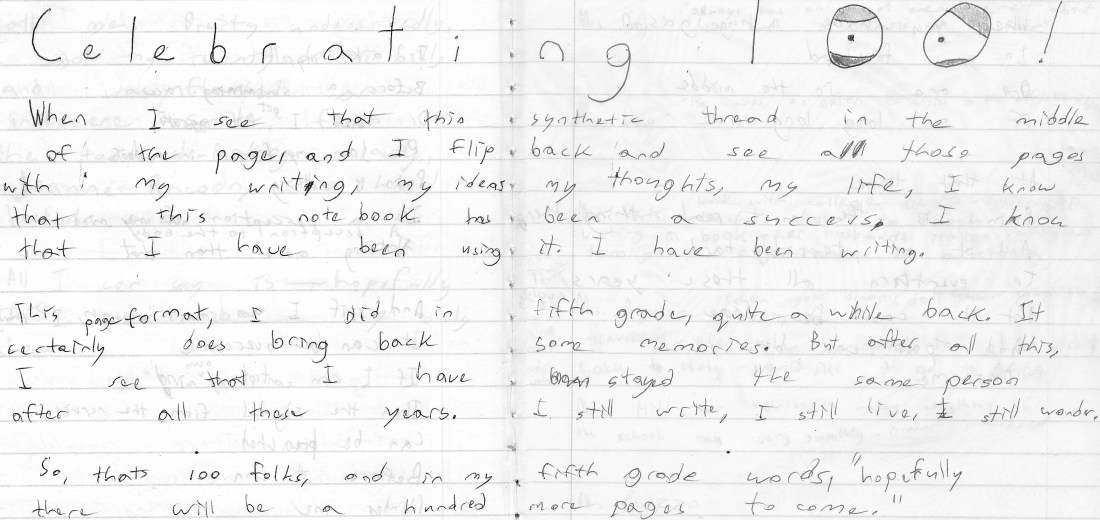 Celebrating 100!
When I see that this synthetic thread in the middle
of the page, and I flip back and see all those pages
with my writing, my ideas my thoughts, my life, I know
that this note book has been a success, I know
that I have been using it. I have been writing.
This page format, I did in fifth grade, quite a while back. It
certainly does bring back some memories. But after all this,
I see that I have stayed the same person
after all these years. I still write, I still live, I still wonder.
So, thats 100 folks, and in my fifth grade words, "hopefully
there will be a hundred more pages to come."